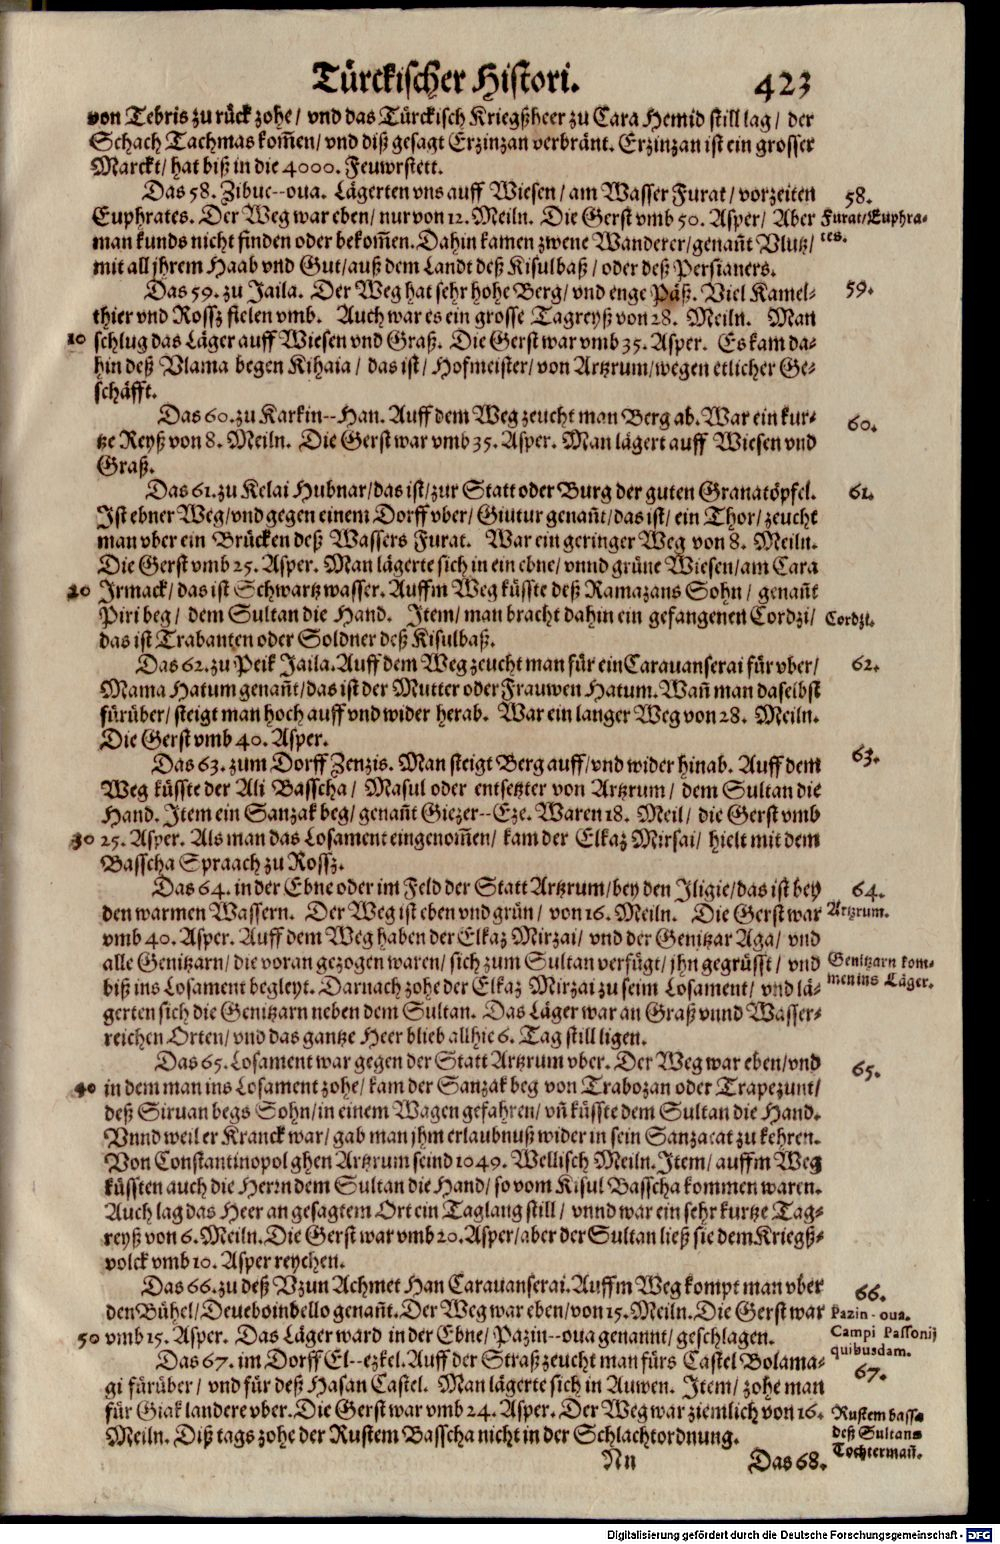 Türckischer Histori. 423
von Tebris zu rück zohe/ vnd das Türckisch Kriegßheer zu Cara Hemid still lag/ der
Schach Tachmas kom̃en/ vnd diß gesagt Erzinzan verbränt. Erzinzan ist ein grosser
Marckt/ hat biß in die 4000. Feuwrstett.
Das 58. Zibuc--oua. Lägerten vns auff Wiesen/ am Wasser Furat/ vorzeiten
58.
Euphrates. Der Weg war eben/ nur von 12. Meiln. Die Gerst vmb 50. Asper/ Aber
Furat/Euphra-
man kunds nicht finden oder bekom̃en. Dahin kamen zwene Wanderer/genañt Vlutz/
tes.
mit all jhrem Haab vnd Gut/auß dem Landt deß Kisulbaß/ oder deß Persianers.
Das 59. zu Jaila. Der Weg hat sehr hohe Berg/ vnd enge Päß. Viel Kamel-
59.
thier vnd Rossz fielen vmb. Auch war es ein grosse Tagreyß von 28. Meiln. Man
10 schlug das Läger auff Wiesen vnd Graß. Die Gerst war vmb 35. Asper. Es kam da-
hin deß Vlama begen Kihaia/ das ist/ Hofmeister/ von Artzrum/wegen etlicher Ge-
schäfft.
Das 60. zu Karkin--Han. Auff dem Weg zeucht man Berg ab. War ein kur-
60.
tze Reyß von 8. Meiln. Die Gerst war vmb 35. Asper. Man lägert auff Wiesen vnd
Graß.
Das 61. zu Kelai Hubnar/das ist/zur Statt oder Burg der guten Granatöpfel.
61.
Ist ebner Weg/vnd gegen einem Dorff vber/ Giutur genañt/das ist/ ein Thor/ zeucht
man vber ein Brücken deß Wassers Furat. War ein geringer Weg von 8. Meiln.
Die Gerst vmb 25. Asper. Man lägerte sich in ein ebne/ vnnd grüne Wiesen/am Cara
20 Irmack/ das ist Schwartzwasser. Auffm Weg küsste deß Ramazans Sohn/ genañt
Piri beg/ dem Sultan die Hand. Item/ man bracht dahin ein gefangenen Cordzi/
Cordzi.
das ist Trabanten oder Soldner deß Kisulbaß.
Das 62. zu Peik Jaila. Auff dem Weg zeucht man für ein Carauanserai für vber/
62.
Mama Hatum genañt/das ist der Mutter oder Frauwen Hatum. Wañ man daselbst
fürüber/ steigt man hoch auff vnd wider herab. War ein langer Weg von 28. Meiln.
Die Gerst vmb 40. Asper.
Das 63. zum Dorff Zenzis. Man steigt Berg auff/vnd wider hinab. Auff dem
63.
Weg küsste der Ali Basscha/ Masul oder entsetzter von Artzrum/ dem Sultan die
Hand. Item ein Sanzak beg/ genañt Giezer--Eze. Waren 18. Meil/ die Gerst vmb
30 25. Asper. Als man das Losament eingenom̃en/ kam der Elkaz Mirsai/ hielt mit dem
Basscha Spraach zu Rossz.
Das 64. in der Ebne oder im Feld der Statt Artzrum/bey den Iligie/das ist bey
64.
den warmen Wassern. Der Weg ist eben vnd grün/ von 16. Meiln. Die Gerst war
Artzrum.
vmb 40. Asper. Auff dem Weg haben der Elkaz Mirzai/ vnd der Genitzar Aga/ vnd
alle Genitzarn/die voran gezogen waren/ sich zum Sultan verfügt/ jhn gegrüsst/ vnd
Genitzarn kom-
biß ins Losament begleyt. Darnach zohe der Elkaz Mirzai zu seim Losament/ vnd lä-
men ins Läger.
gerten sich die Genitzarn neben dem Sultan. Das Läger war an Graß vnnd Wasser-
reichen Orten/ vnd das gantze Heer blieb allhie 6. Tag still ligen.
Das 65. Losament war gegen der Statt Artzrum vber. Der Weg war eben/vnd
65.
40 in dem man ins Losament zohe/ kam der Sanzak beg von Trabozan oder Trapezunt/
deß Siruan begs Sohn/in einem Wagen gefahren/ vñ küsste dem Sultan die Hand.
Vnnd weil er Kranck war/ gab man jhm erlaubnuß wider in sein Sanzacat zu kehren.
Von Constantinopol ghen Artzrum seind 1049. Wellisch Meiln. Item/ auffm Weg
küssten auch die Herrn dem Sultan die Hand/ so vom Kisul Basscha kommen waren.
Auch lag das Heer an gesagtem Ort ein Taglang still/ vnnd war ein sehr kurtze Tag-
reyß von 6. Meiln. Die Gerst war vmb 20. Asper/aber der Sultan ließ sie dem Kriegß-
volck vmb 10. Asper reychen.
Das 66. zu deß Vzun Achmet Han Carauanserai. Auffm Weg kompt man vber
66.
den Bühel/ Deueboindello genañt. Der Weg war eben/von 15. Meiln. Die Gerst war
Pazin-oua.
50 vmb 15. Asper. Das Läger ward in der Ebne/ Pazin--oua genannt/ geschlagen.
Campi Passonij
quibusdam.
Das 67. im Dorff El--ezkel. Auff der Straß zeucht man fürs Castel Bolama-
67.
gi fürüber/ vnd für deß Hasan Castel. Man lägerte sich in Auwen. Item/ zohe man
für Giaklandere vber. Die Gerst war vmb 24. Asper. Der Weg war ziemlich von 16.
Rustem bassa
Meiln. Diß tags zohe der Rustem Basscha nicht in der Schlachtordnung.
deß Sultans
Tochtermañ.
Nn Das 68.
Digitalisierung gefördert durch die Deutsche Forschungsgemeinschaft - DFG